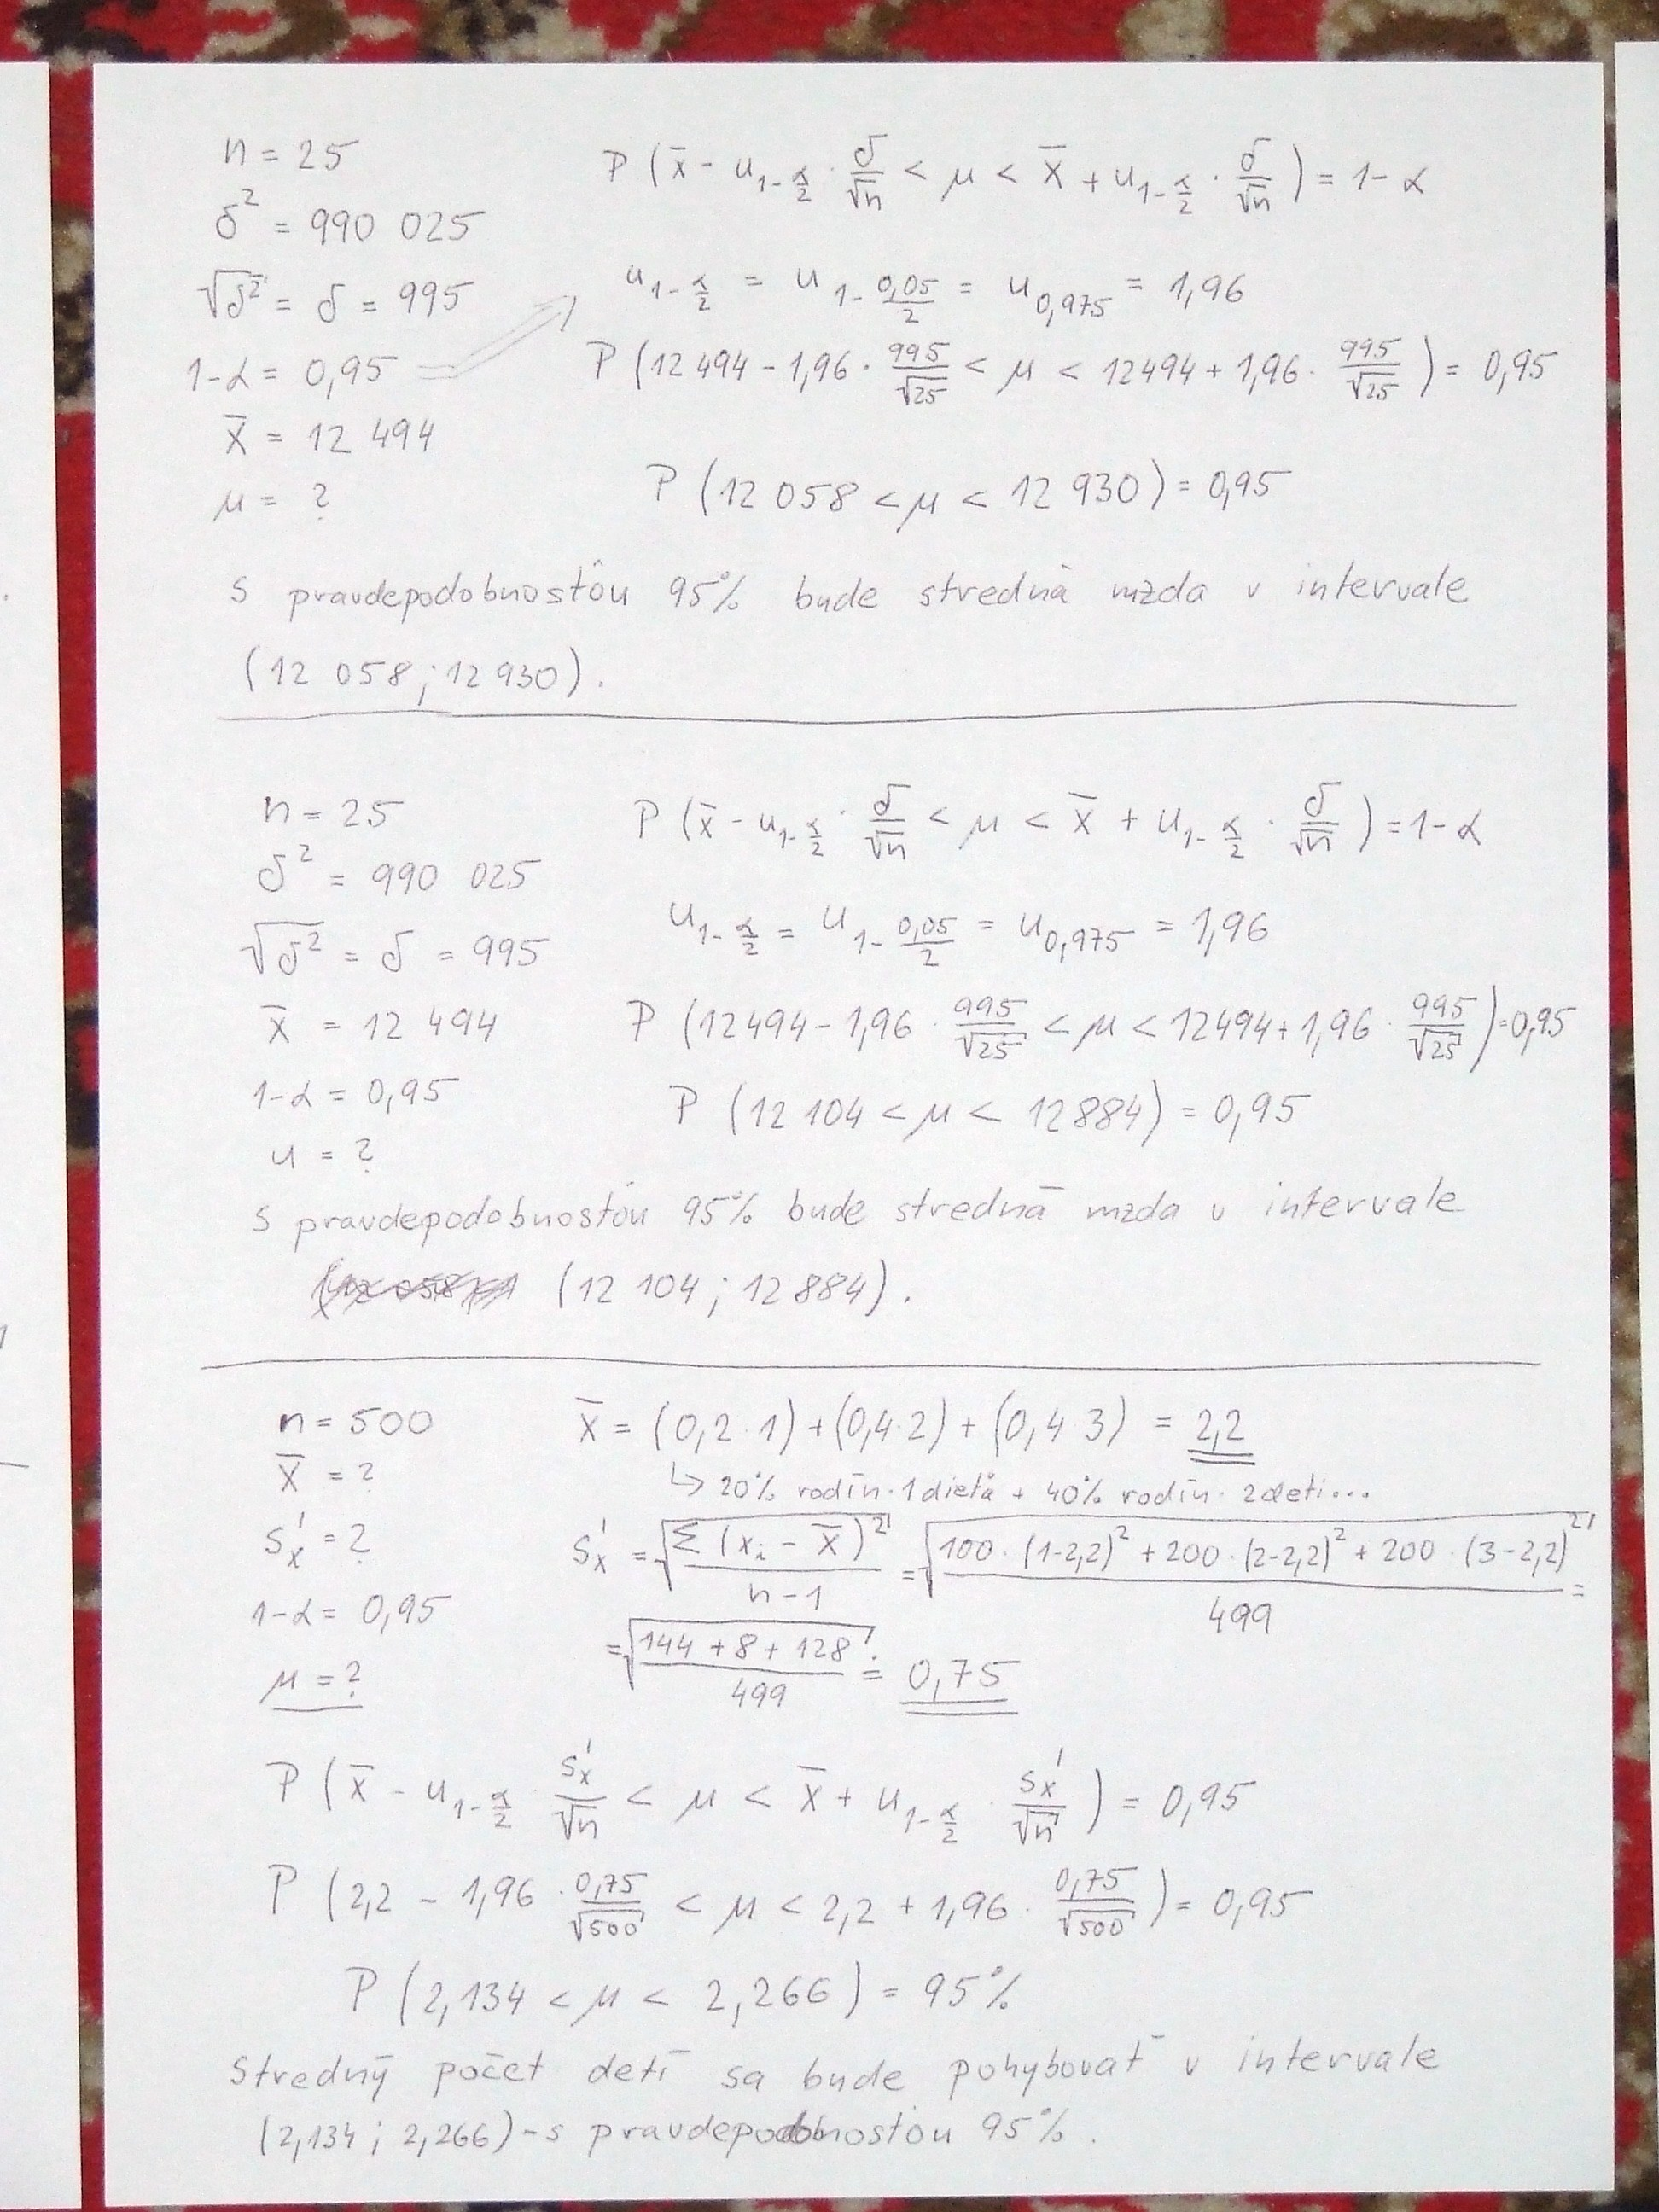 n = 25
δ² = 990 025
√δ² = δ = 995
1-α = 0,95
x̄ = 12 494
μ = ?
P (x̄ - u₁₋α/2 · δ/√n < μ < x̄ + u₁₋α/2 · δ/√n) = 1-α
u₁₋α/2 = u₁₋0,05/2 = u0,975 = 1,96
P (12 494 - 1,96 · 995/√25 < μ < 12494 + 1,96 · 995/√25) = 0,95
P (12 058 < μ < 12 930) = 0,95
s pravdepodobnosťou 95% bude stredná mzda v intervale
(12 058 ; 12 930).
n = 25
δ² = 990 025
√δ² = δ = 995
x̄ = 12 494
1-α = 0,95
u = ?
P (x̄ - u₁₋α/2 · δ/√n < μ < x̄ + u₁₋α/2 · δ/√n) = 1-α
u₁₋α/2 = u₁₋0,05/2 = u0,975 = 1,96
P (12494 - 1,96 · 995/√25 < μ < 12494 + 1,96 · 995/√25) = 0,95
P (12 104 < μ < 12884) = 0,95
s pravdepodobnosťou 95% bude stredná mzda v intervale
(12 104 ; 12 884).
n = 500
x̄ = ?
sₓ' = ?
1-α = 0,95
μ = ?
x̄ = (0,2·1) + (0,4·2) + (0,4·3) = 2,2
↳ 20% rodín · 1 dieťa + 40% rodín · 2 deti...
sₓ' = √(Σ(xᵢ - x̄)²/n-1) = √(100·(1-2,2)² + 200·(2-2,2)² + 200·(3-2,2)²/499) =
= √(144 + 8 + 128/499) = 0,75
P (x̄ - u₁₋α/2 · sₓ'/√n < μ < x̄ + u₁₋α/2 · sₓ'/√n) = 0,95
P (2,2 - 1,96 · 0,75/√500 < μ < 2,2 + 1,96 · 0,75/√500) = 0,95
P (2,134 < μ < 2,266) = 95%
Stredný počet detí sa bude pohybovať v intervale
(2,134 ; 2,266) - s pravdepodobnosťou 95%.